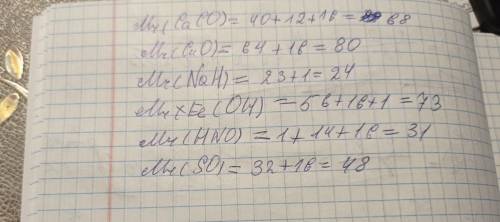 Mr(CaCO)= 40+12+16 = 68
Mr(CuO)= 64+16 = 80
Mr(NaH)= 23+1= 24
Fe(OH) = 56+16+1 = 73
Mr(HNO) = 1+14+16= 31
Mr(SO)= 32+16= 48